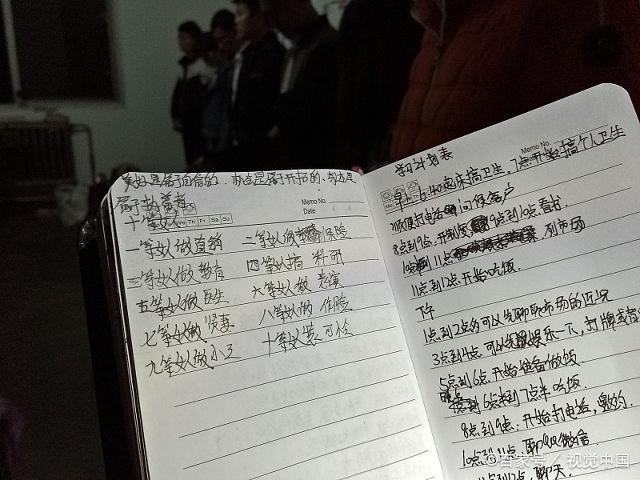 美好是属于自信的，机会是属于开拓的，奇迹是
属于执着者
Memo No.
Date
Th Fr Sa Su
十等女人
一等女人做直销 二等女人做保险
三等女人做教育 四等女人搞科研
五等女人做医生 六等女人做表演
七等女人做贤妻 八等女人做
九等女人做小三 十等女人装可怜
Memo No.
学习计划表
早上6:40起床搞卫生，7点开始搞个人卫生
问候客户
8点到9点，开 9点到10点看书
11点 列市场
11点到12点开始吃饭.
下午
1点到2点多可以先聊聊市场的近况
3点到4点可以先娱乐一下，打牌或者
5点到6点开始准备做饭
6点半到7点半吃饭.
8点到9点：开始打电话，邀约.
10点到11点 聊微信
11点到12点，聊天.
©百家号／视觉中国